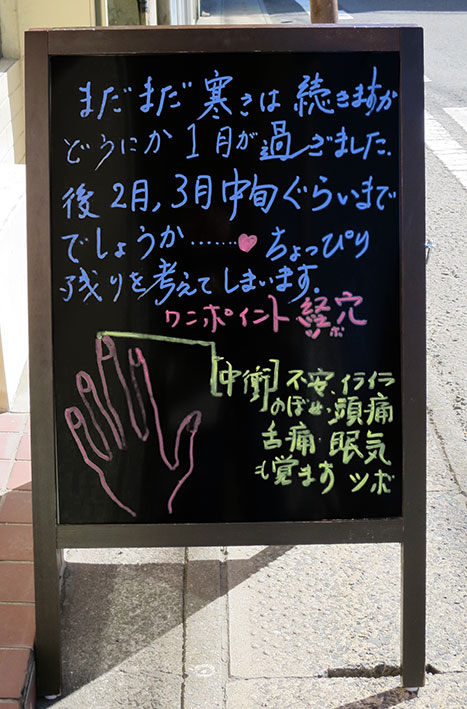 まだまだ寒さは続きますが
どうにか1月が過ぎました、
後2月,3月中旬ぐらいまで
でしょうか……♥ちょっぴり
残りを考えてしまいます。
ワンポイント経穴
ツボ
[中衝]不安、イライラ
のぼせ、頭痛
舌痛・眠気
も覚ますツボ